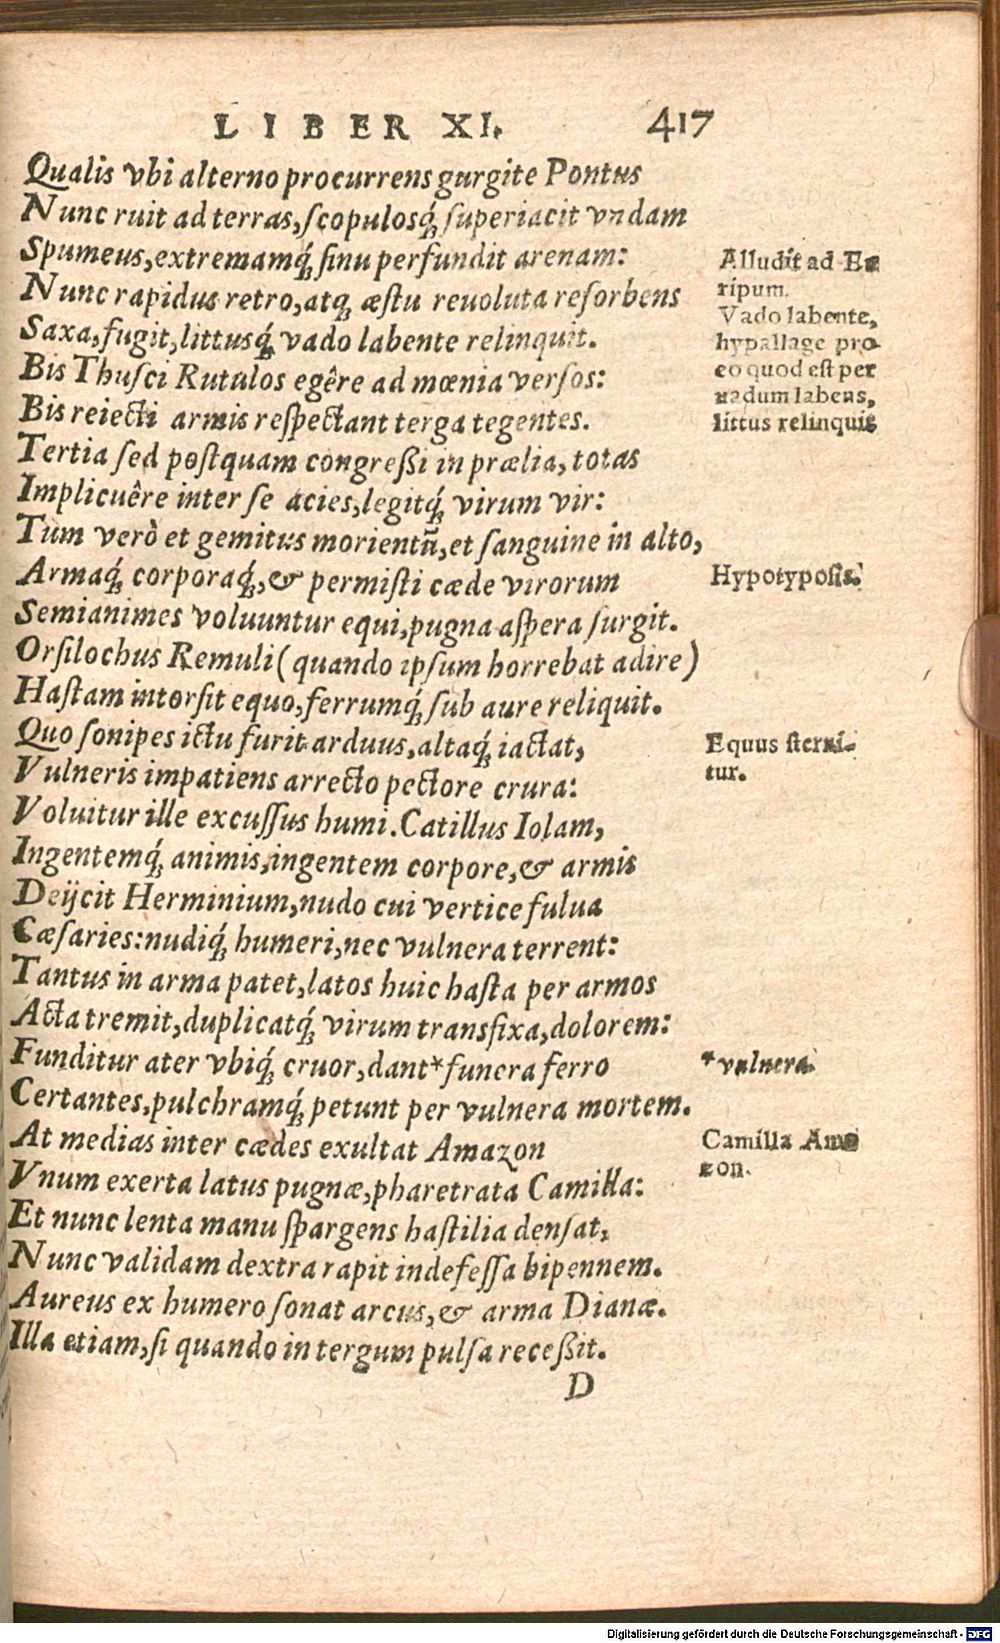 LIBER XI. 417
Qualis vbi alterno procurrens gurgite Pontus
Nunc ruit ad terras, ſcopulosq́; ſuperiacit vndam
Spumeus, extremamq́; ſinu perfundit arenam:
Nunc rapidus retro, atq; æſtu reuoluta reſorbens
Saxa, fugit, littusq́; vado labente relinquit.
Bis Thuſci Rutulos egêre ad mœnia verſos:
Bis reiecti armis reſpectant terga tegentes.
Tertia ſed poſtquam congreßi in prælia, totas
Implicuêre inter ſe acies, legitq́; virum vir:
Tum verò et gemitus morientū, et ſanguine in alto,
Armaq́; corporaq́;, & permiſti cæde virorum
Semianimes voluuntur equi, pugna aſpera ſurgit.
Orſilochus Remuli (quando ipſum horrebat adire)
Haſtam intorſit equo, ferrumq́; ſub aure reliquit.
Quo ſonipes ictu furit arduus, altaq́; iactat,
Vulneris impatiens arrecto pectore crura:
Voluitur ille excuſſus humi. Catillus Iolam,
Ingentemq́; animis, ingentem corpore, & armis
Deijcit Herminium, nudo cui vertice fulua
Cæſaries: nudiq́; humeri, nec vulnera terrent:
Tantus in arma patet, latos huic haſta per armos
Acta tremit, duplicatq́; virum transfixa, dolorem:
Funditur ater vbiq́; cruor, dant* funera ferro
Certantes, pulchramq́; petunt per vulnera mortem.
At medias inter cædes exultat Amazon
Vnum exerta latus pugnæ, pharetrata Camilla:
Et nunc lenta manu ſpargens haſtilia denſat,
Nunc validam dextra rapit indefeſſa bipennem.
Aureus ex humero ſonat arcus, & arma Dianæ.
Illa etiam, ſi quando in tergum pulſa receßit.
D
Alludit ad Eu
ripum.
Vado labente,
hypallage pro
eo quod eſt per
uadum labens,
littus relinquit
Hypotypoſis.
Equus ſterni-
tur.
* vulnera.
Camilla Ama
zon.
Digitalisierung gefördert durch die Deutsche Forschungsgemeinschaft - DFG